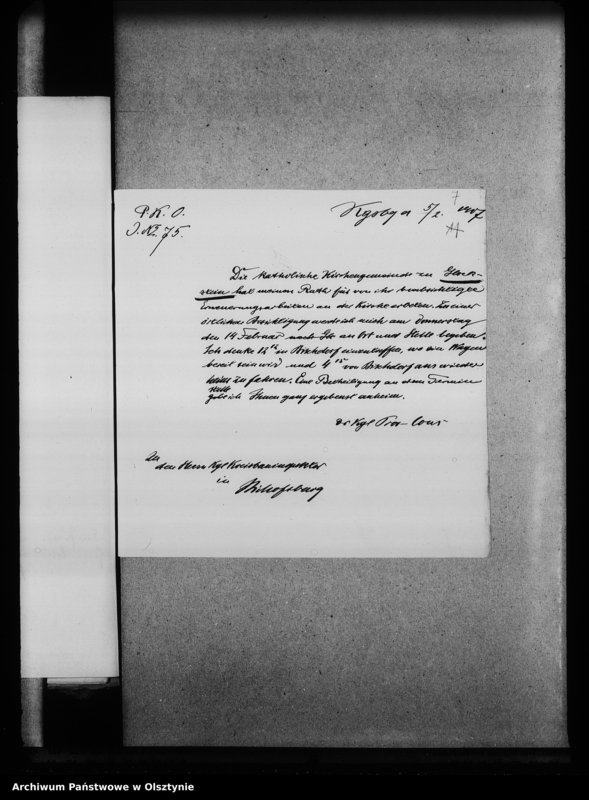 P. K. O.
J. No. 75.
Kgsbg d 5/2. 1907
Die katholische Kirchengemeinde zu Glock-
stein hat meinen Rath für von ihr beabsichtigte
Erneuerungsarbeiten an der Kirche erbeten. Zu einer
örtlichen Besichtigung werde ich mich am Donnerstag
den 14 Februar nach Gl. an Ort und Stelle begeben.
Ich denke in Bischdorf einzutreffen, wo ein Wagen
bereit sein wird und 4 von Bischdorf aus wieder
zu fahren. Eine Betheiligung an dem Termin
stelle
gebe ich Ihnen ganz ergebenst anheim.
Der Kgl Prov- Cons
An
den Herrn Kgl Kreisbauinspektor
in
Bischofsburg
Archiwum Państwowe w Olsztynie